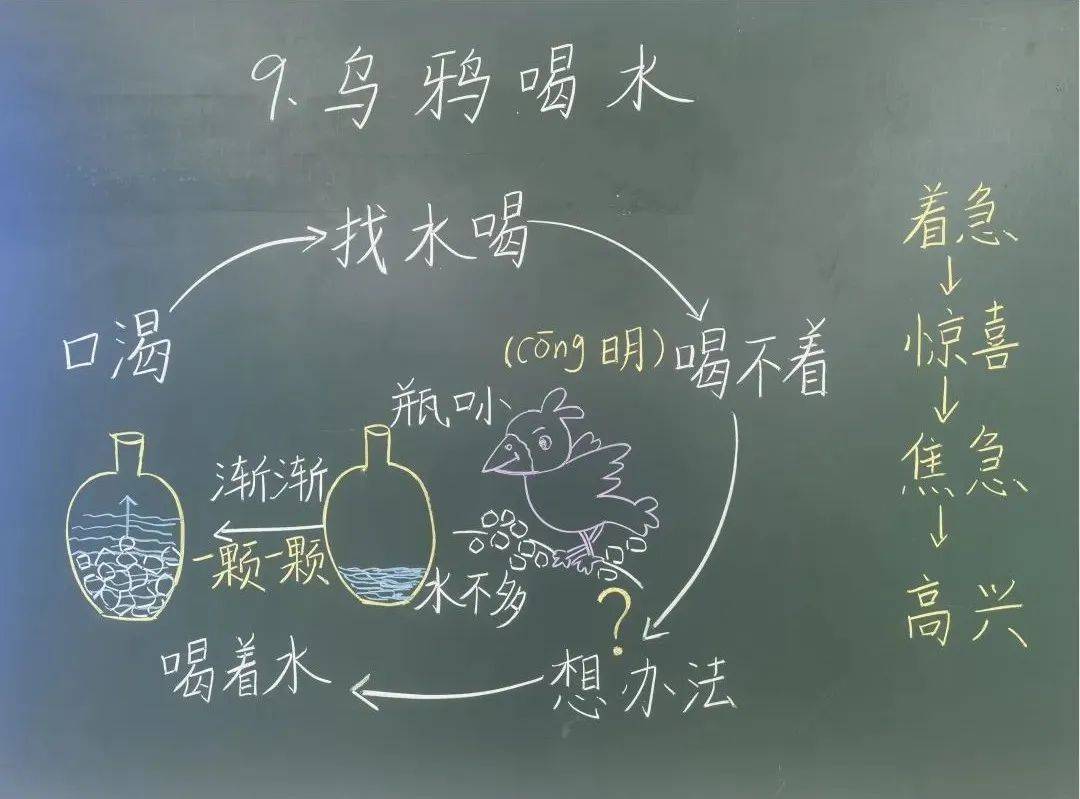 9.乌鸦喝水
找水喝
口渴
(cōng明)
喝不着
瓶口小
渐渐
一颗一颗
水不多
?
想办法
喝着水
着急
惊喜
焦急
高兴